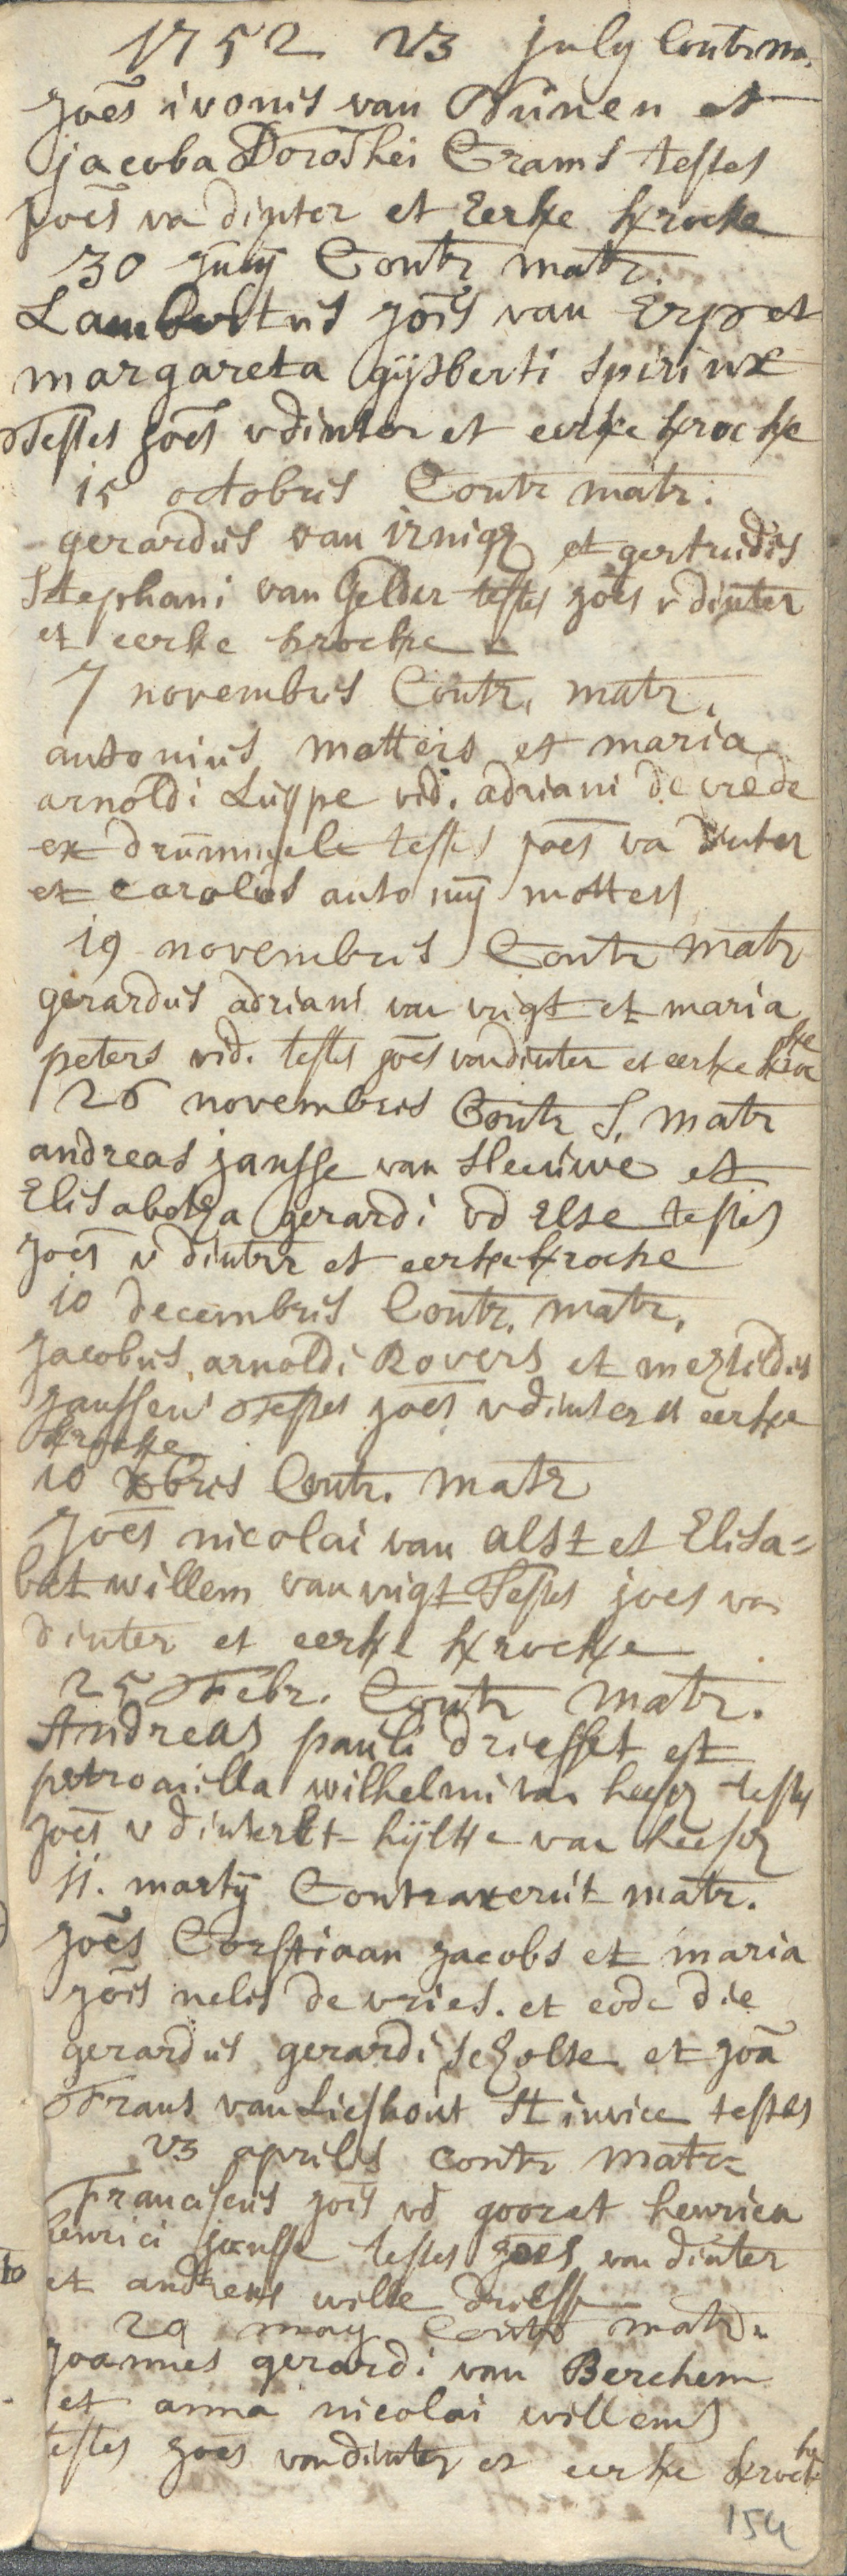 1752 23 july Contr ma.
joēs ivonis van Nunen et
jacoba Dorothei Crams testes
joēs va dinter et Eerke krocke
30 july Contr matr.
Lambertus joīs van Erp et
margareta gijsberti spirinx
Testes joēs v dinter et eerke krocke
15 octobris Contr matr.
gerardus van et gertrudis
Stephani van Gelder testes joēs v dinter
et eerke krocke
7 novembris Contr. matr.
antonius motters et maria
arnoldi Luppe vid. adriani de vrede
ex drummele testes joēs va dinter
et carolus antonij motters
19 novembris Contr matr
gerardus adriani van vugt et maria
peters vid. testes joēs van dinter et eerke krocke
26 novembris Contr S. matr
andreas jansse van sleeuwe et
Elisabetha gerardi vd Else testes
joēs v dinter et eerke krocke
10 decembris Contr. matr.
Jacobus arnoldi Rovers et meghtildis
janssen Testes joēs v dinter et eerke
krocke
10 xbris Contr. matr
joēs nicolai van alst et Elisa=
bet willem van vugt Testes joes va
dinter et eerke krocke
25 Febr. Contr matr.
Andreas pauli driesset et
petronilla wilhelmi van heese testes
joēs v dinter et hijlke van heese
11. martij Contraxerūt matr.
joēs Corstiaan jacobs et maria
joīs nelis de vries. et eode die
gerardus gerardi scholte et joā
Frans van Lieshout testes
23 aprilis contr matr
Franciscus joīs vd goor et henrica
henrici jansse testes joēs van dinter
et andreas wille driesse
29 may Contr matr.
joannes gerardi van Berchem
et anna nicolai willems
testes joēs van dinter et eerke krocke
154